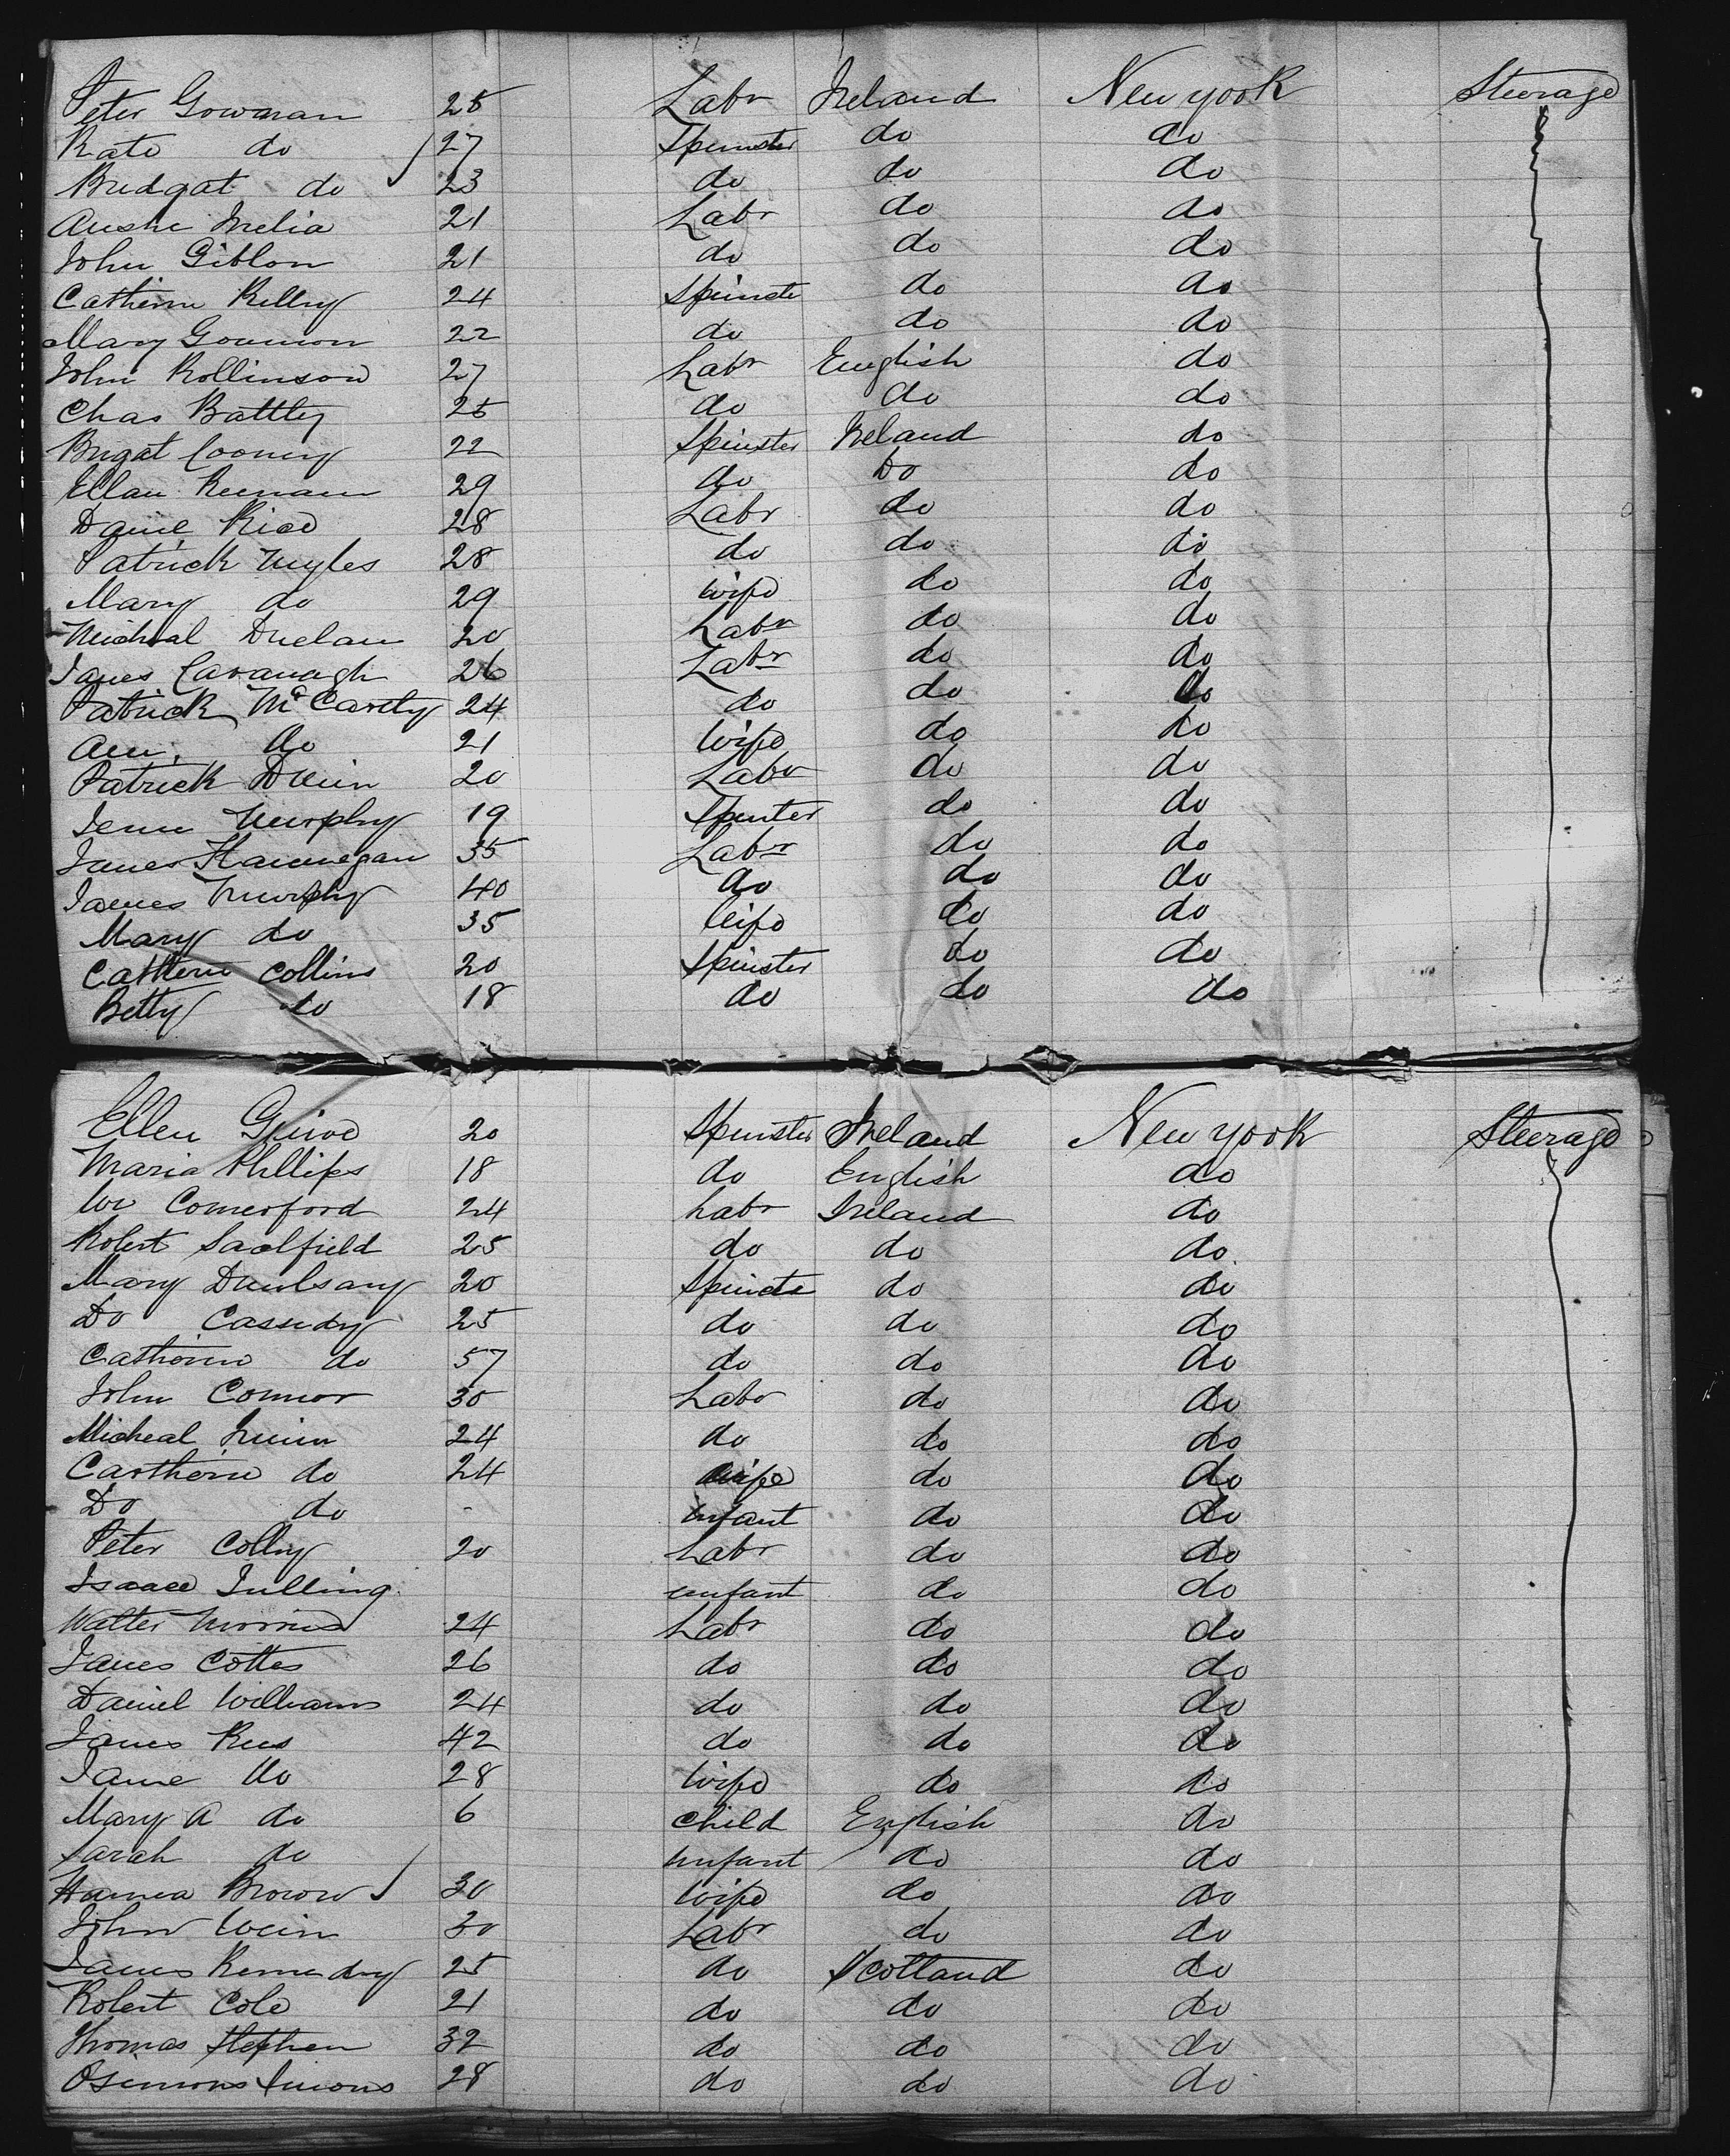 Peter Gowman 25 Labr Ireland New york Steerage
Kate do 27 Spinster do do
Bridgat do 23 do do do
Melia 21 Labr do do
John Giblon 21 do do do
Catherine Kelley 24 Spinste do do
Mary 22 do do do
John Rollinson 27 Labr English do
Chas Battley 25 do do do
Brigat Cooney 22 Spinster Ireland do
Ellan 29 do Do do
Daniel Rice 28 Labr do do
Patrick Myles 28 do do do
Mary do 29 wife do do
Micheal 20 Labr do do
James Cavanagh 26 Labr do do
Patrick McCarty 24 do do do
Ann do 21 Wife do do
Patrick 20 Labr do do
Murphy 19 Spinter do do
James Flannegan 35 Labr do do
James Murphy 40 do do do
Mary do 35 Wife do do
Catherine Collins 20 Spinster do do
Betty do 18 do do do
Ellen 20 Spinster Ireland New york Steerage
Maria Phillips 18 do English do
Wm Comerford 24 Labr Ireland do
Robert 25 do do do
Mary 20 Spinste do do
Do Cassedy 25 do do do
Catherine do 57 do do do
John Connor 30 Labr do do
Micheal Quinn 24 do do do
Catherine do 24 Wife do do
Do do - infant do do
Peter Colley 20 Labr do do
Isaace infant do do
Walter Morris 24 Labr do do
James Cottes 26 do do do
Daniel Williams 24 do do do
James Rees 42 do do do
Jane do 28 Wife do do
Mary A do 6 child English do
Sarah do infant do do
Hanna Brown 30 Wife do do
John 30 Labr do do
James Kennedy 25 do Scotland do
Robert Cole 21 do do do
Thomas Stephen 32 do do do
28 do do do